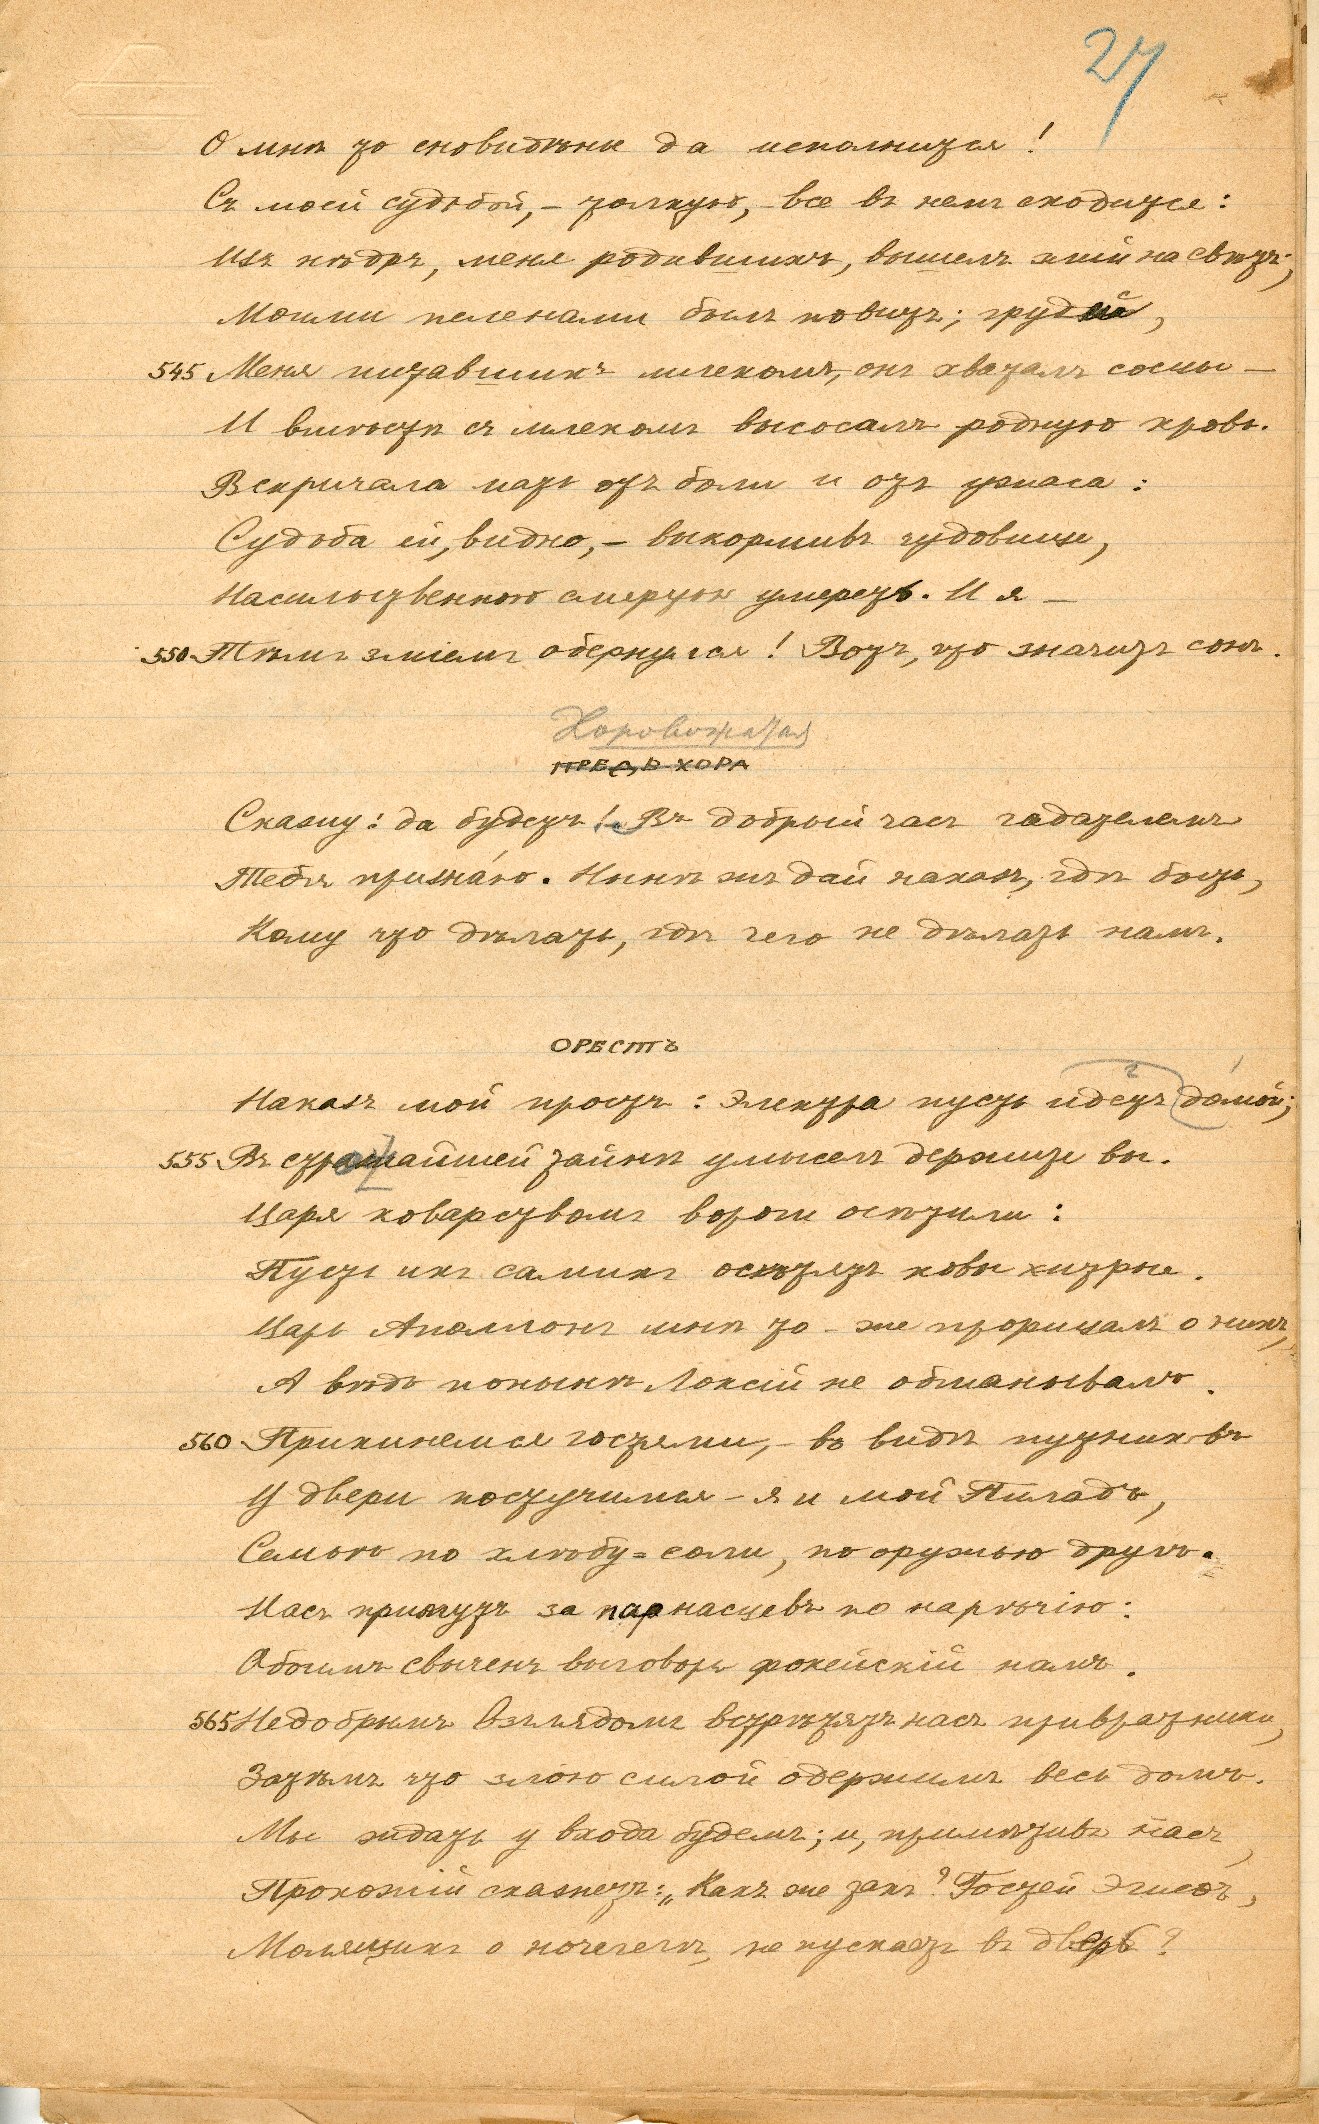 27
О мнѣ то сновидѣнье да исполнится!
Съ моей судьбой, – толкую, – все въ немъ сходится:
Изъ нѣдръ, меня родившихъ, вышелъ змій на свѣтъ;
Моими пеленами былъ повитъ; грудей,
545 Меня питавшихъ млекомъ, онъ хваталъ сосцы –
И вмѣстѣ съ млекомъ высосалъ родную кровь.
Вскричала мать отъ боли и отъ ужаса:
Судьба ей, видно, – выкормивъ чудовище,
Насильственною смертью умереть. И я –
550 Тѣмъ зміемъ обернулся! Вотъ, что значитъ сонъ.
Хоровожатая
ПРЕДЪ ХОРА
Скажу: да будетъ! Въ добрый часъ гадателемъ
Тебя призна́ю. Нынѣ жъ дай наказъ, гдѣ быть,
Кому что дѣлать, гдѣ чего не дѣлать намъ.
ОРЕСТЪ
Наказъ мой простъ: Электра пусть идетъ домой;
555 Въ строжайшей тайнѣ умыселъ держите вы.
Царя коварствомъ вороги опѣтили:
Пусть ихъ самихъ опѣтятъ ковы хитрые.
Царь Аполлонъ мнѣ то-же прорицалъ о нихъ,
А вѣдь понынѣ Локсій не обманывалъ.
560 Прикинемся гостями, – въ видѣ путниковъ
У двери постучимся – я и мой Пиладъ,
Семьѣ по хлѣбу-соли, по оружью другъ.
Насъ примутъ за парнасцевъ по нарѣчію:
Обоимъ свыченъ выговоръ фокейскій намъ.
565 Недобрымъ взглядомъ встрѣтятъ насъ привратники,
Затѣмъ что злою силой одержимъ весь домъ.
Мы ждать у входа будемъ; и, примѣтивъ насъ,
Прохожій скажетъ: „Какъ же такъ? Гостей Эгисѳъ,
Молящихъ о ночлегѣ, не пускаетъ въ дверь?